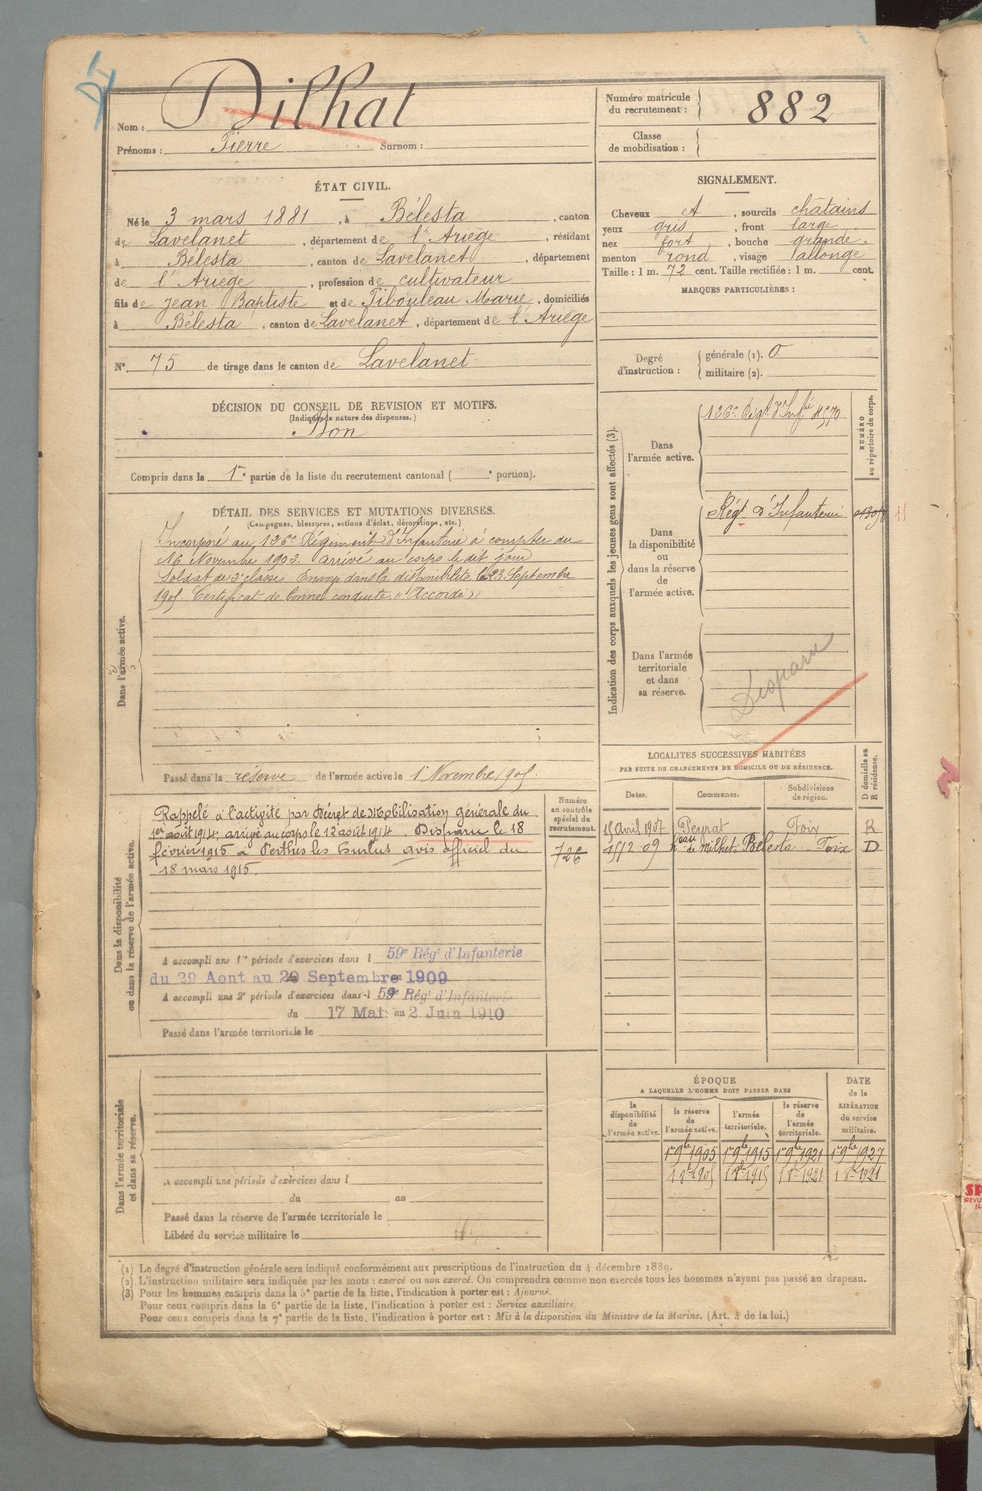 Dilhat
Nom :
Prénoms : Pierre Surnom :
Numéro matricule du recrutement : 882
Classe de mobilisation :
ÉTAT CIVIL.
Né le 3 mars 1881, à Bélesta, canton
de Lavelanet, département de l'Ariège, résidant
à Bélesta, canton de Lavelanet, département
de l'Ariège, profession de cultivateur
fils de Jean Baptiste et de Tibouleau Marie, domiciliés
à Bélesta, canton de Lavelanet, département de l'Ariège
N° 75 de tirage dans le canton de Lavelanet
SIGNALEMENT.
Cheveux et, sourcils châtains
yeux gris, front large
nez fort, bouche grande
menton rond, visage allongé
Taille : 1 m. 72 cent. Taille rectifiée : 1 m. cent.
MARQUES PARTICULIÈRES :
Degré d'instruction : générale (1). 0
militaire (2).
DÉCISION DU CONSEIL DE REVISION ET MOTIFS.
(Indiquer la nature des dispenses.)
Bon
Compris dans la 1re partie de la liste du recrutement cantonal ( e portion).
DÉTAIL DES SERVICES ET MUTATIONS DIVERSES.
(Campagnes, blessures, actions d'éclat, décorations, etc.)
Dans l'armée active.
Incorporé au 126e Régiment d'Infanterie à compter du
16 Novembre 1902. arrivé au corps le dit jour
Soldat de 2e classe. Envoyé dans la disponibilité le 23 Septembre
1905. Certificat de bonne conduite "Accordé"
Passé dans la réserve de l'armée active le 1 Novembre 1905.
Indication des corps auxquels les jeunes gens sont affectés (3).
NUMÉRO au répertoire du corps.
Dans l'armée active.
126e Régt d'Infie
Dans la disponibilité ou dans la réserve de l'armée active.
Régt d'Infanterie
Dans l'armée territoriale et dans sa réserve.
Disparu
Dans la disponibilité ou dans la réserve de l'armée active.
Rappelé à l'activité par Décret de Mobilisation générale du
1er août 1914, arrivé au corps le 12 août 1914. Disparu le 18
février 1915 à Perthes les Hurlus avis officiel du
18 mars 1915.
Numéro au contrôle spécial du recrutement.
A accompli une 1re période d'exercices dans l 59e Régt d'Infanterie
du 29 Aout au 20 Septembre 1909
A accompli une 2e période d'exercices dans l 59e Régt d'Infanterie
du 17 Mai au 2 Juin 1910
Passé dans l'armée territoriale le
LOCALITÉS SUCCESSIVES HABITÉES
PAR SUITE DE CHANGEMENTS DE DOMICILE OU DE RÉSIDENCE.
Dates. Communes. Subdivisions de région. D domicile ou R résidence.
15 avril 1907 Peyrat Foix R
Bélesta Foix D
Dans l'armée territoriale et dans sa réserve.
A accompli une période d'exercices dans l
du au
Passé dans la réserve de l'armée territoriale le
Libéré du service militaire le
ÉPOQUE
A LAQUELLE L'HOMME DOIT PASSER DANS
DATE de la LIBÉRATION du service militaire.
la disponibilité de l'armée active. la réserve de l'armée active. l'armée territoriale. la réserve de l'armée territoriale.
1er 9bre 1905 1er 9bre 1915 1er 9bre 1921 1er 9bre 1927
(1) Le degré d'instruction générale sera indiqué conformément aux prescriptions de l'instruction du 4 décembre 1889.
(2) L'instruction militaire sera indiquée par les mots : exercé ou non exercé. On comprendra comme non exercés tous les hommes n'ayant pas passé au drapeau.
(3) Pour les hommes compris dans la 5e partie de la liste, l'indication à porter est : Ajourné.
Pour ceux compris dans la 6e partie de la liste, l'indication à porter est : Service auxiliaire.
Pour ceux compris dans la 7e partie de la liste, l'indication à porter est : Mis à la disposition du Ministre de la Marine. (Art. 4 de la loi.)